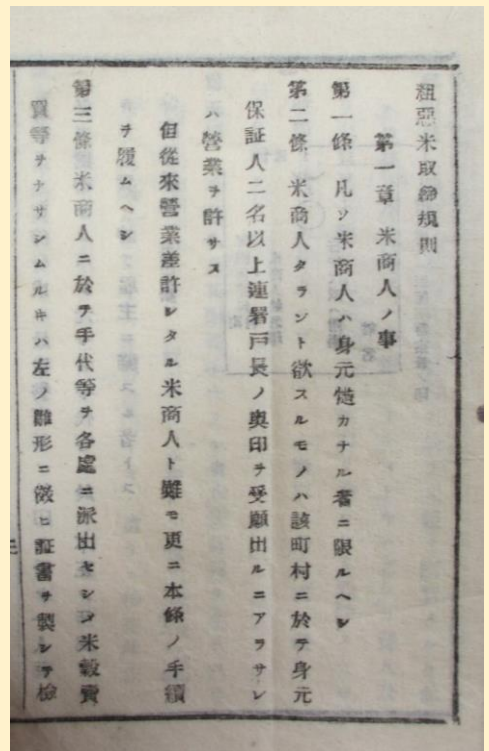 粗惡米取締規則
第一章 米商人ノ事
第一條 凡ソ米商人ハ身元慥カナル者ニ限ルヘシ
第二條 米商人タラント欲スルモノハ該町村ニ於テ身元
保証人二名以上連署戸長ノ奥印ヲ受願出ルニアラサレ
ハ營業ヲ許サス
但從來營業差許シタル米商人ト雖モ更ニ本條ノ手續
ヲ履ムヘシ
第三條 米商人ニ於テ手代等ヲ各處ニ派出セシメ米穀賣
買等ヲナサシムルキハ左ノ雛形ニ倣ヒ証書ヲ製シテ檢